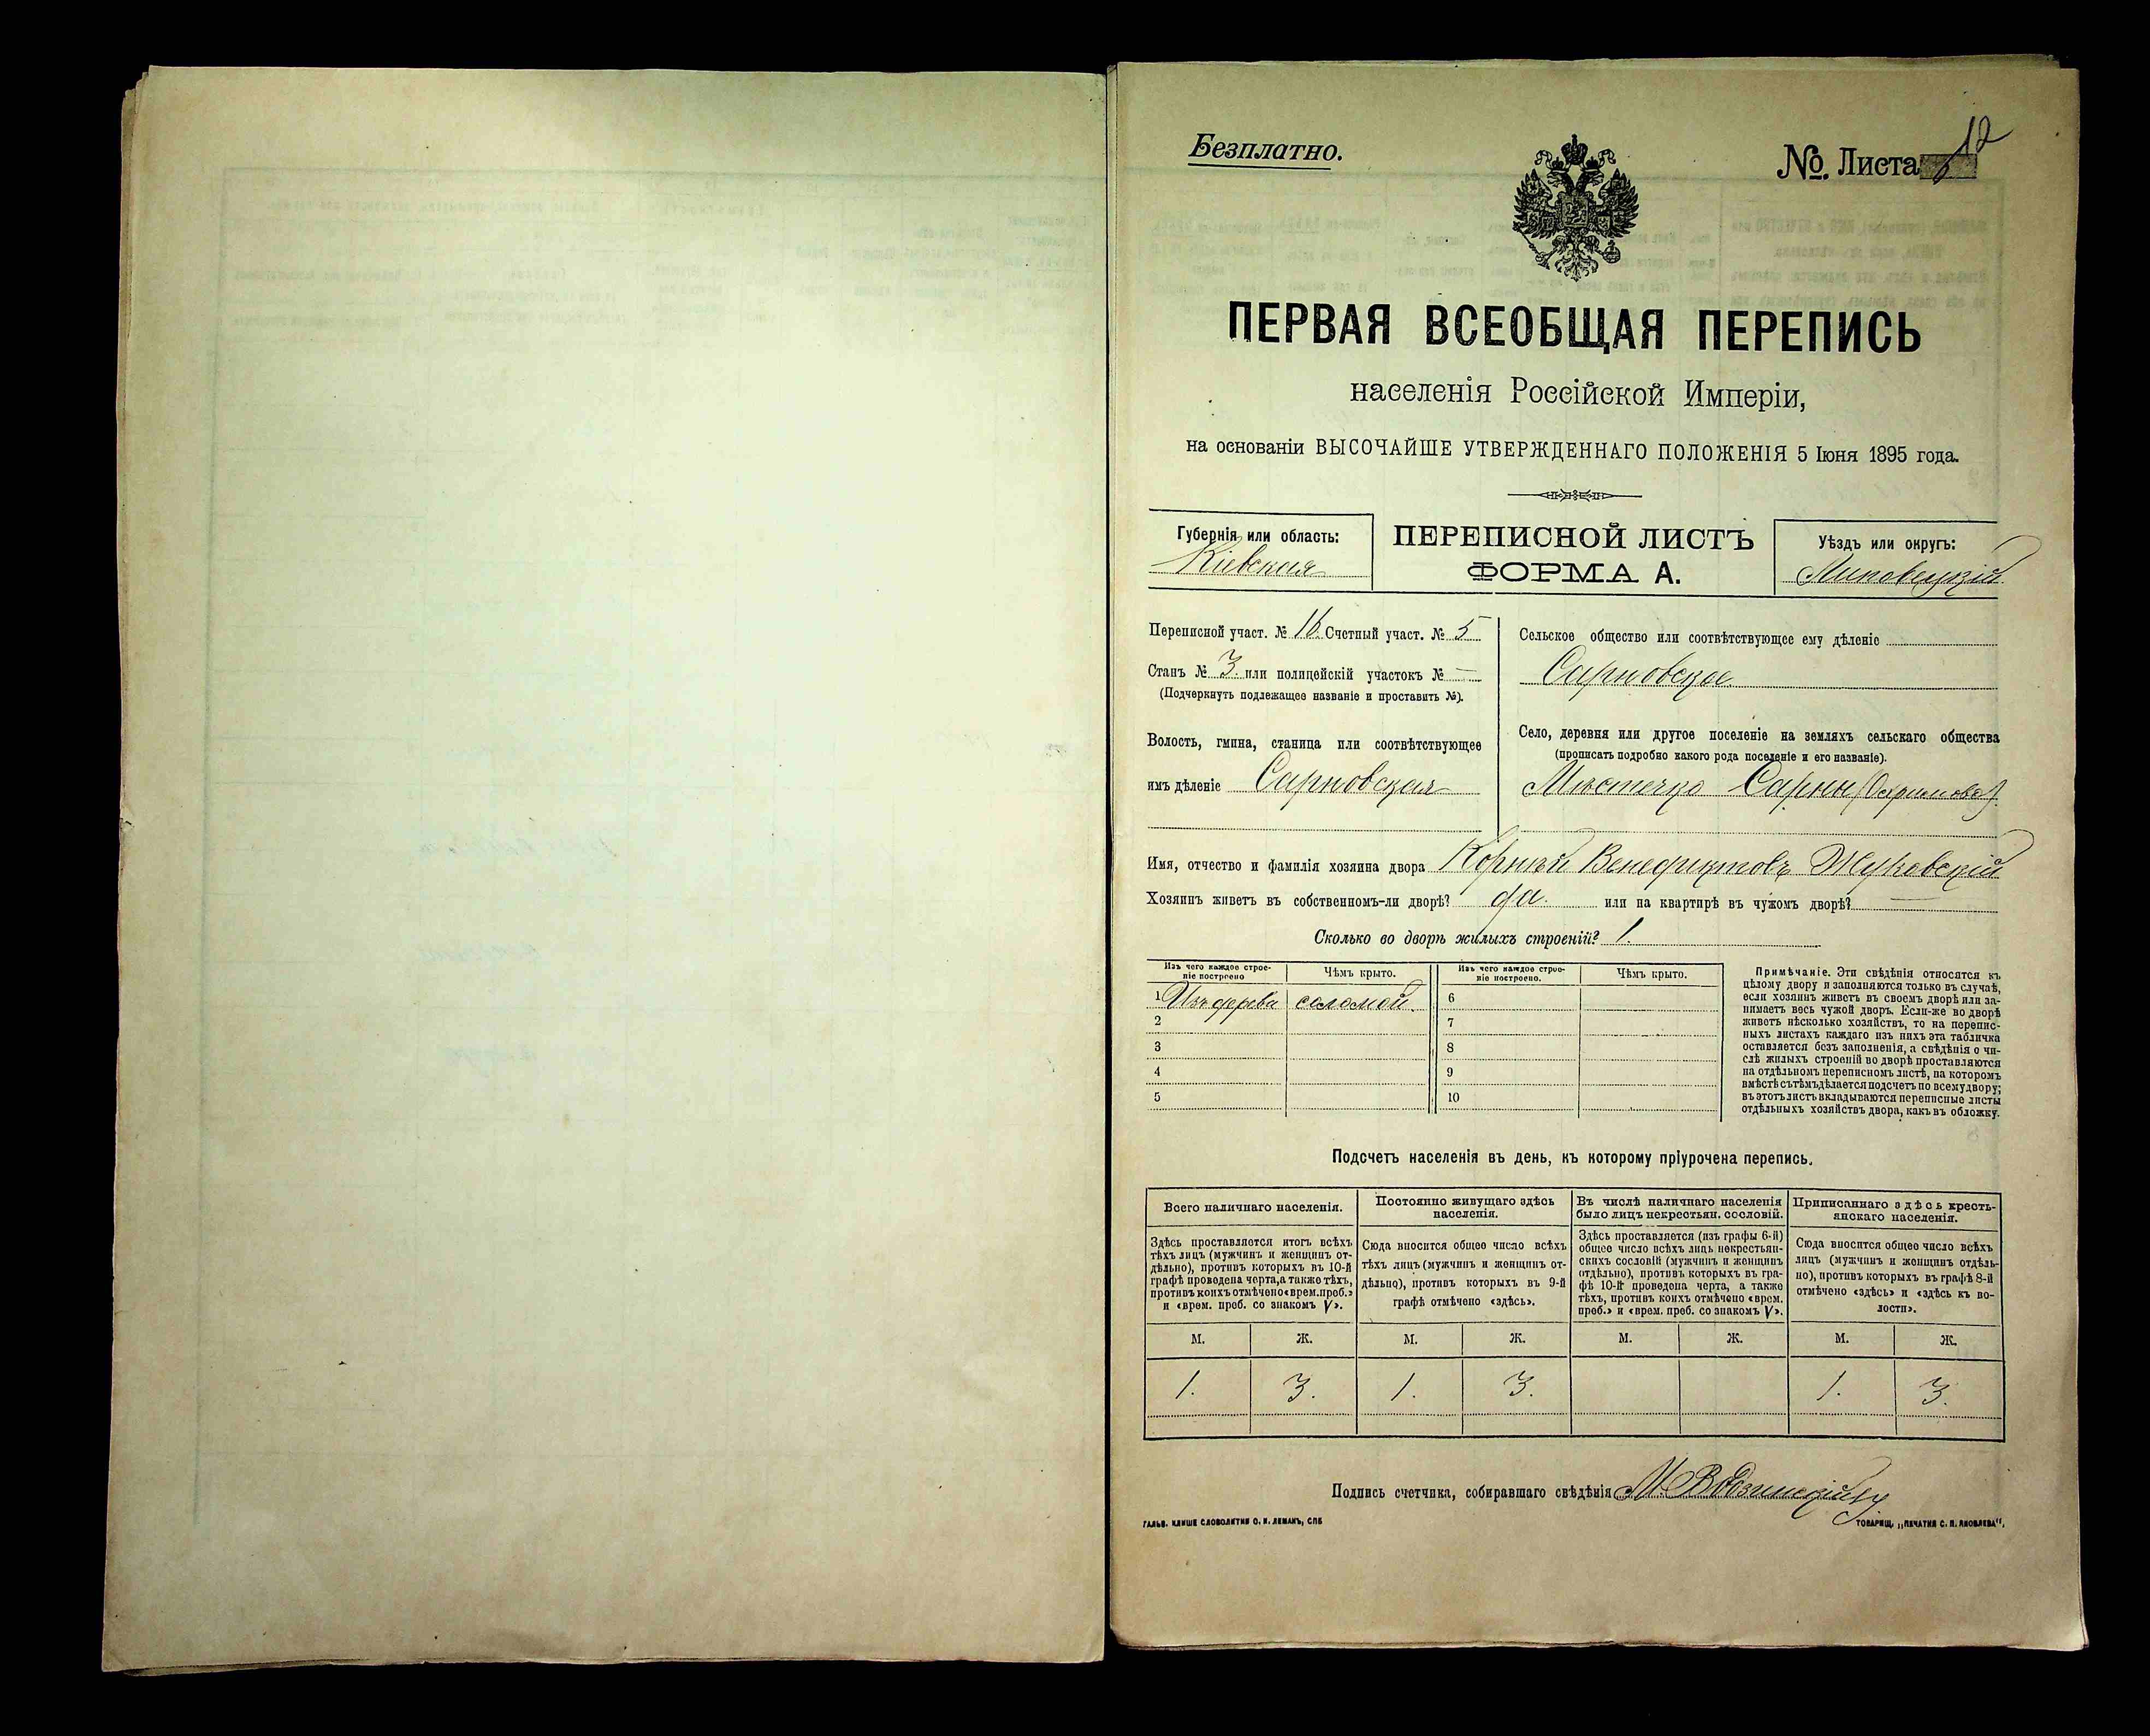 Безплатно.
№ Листа 12
ПЕРВАЯ ВСЕОБЩАЯ ПЕРЕПИСЬ
населенія Россійской Имперіи,
на основаніи ВЫСОЧАЙШЕ УТВЕРЖДЕННАГО ПОЛОЖЕНІЯ 5 Іюня 1895 года.
Губернія или область:
Кіевская
ПЕРЕПИСНОЙ ЛИСТЪ
ФОРМА А.
Уѣздъ или округъ:
Липовецкій
Переписной участ. № 16. Счетный участ. № 5
Станъ № 3. или полицейскій участокъ № —
(Подчеркнуть подлежащее названіе и проставить №).
Волость, гмина, станица или соотвѣтствующее
имъ дѣленіе Сарновская
Сельское общество или соотвѣтствующее ему дѣленіе
Сарновское
Село, деревня или другое поселеніе на земляхъ сельскаго общества
(прописать подробно какого рода поселеніе и его названіе).
Мѣстечко Сарны (Охримово)
Имя, отчество и фамилія хозяина двора Корнѣй Венедиктовъ Жуковскій
Хозяинъ живетъ въ собственномъ-ли дворѣ? да. или на квартирѣ въ чужомъ дворѣ? —
Сколько во дворѣ жилыхъ строеній? 1.
Изъ чего каждое строе-
ніе построено
Чѣмъ крыто.
Изъ чего каждое строе-
ніе построено.
Чѣмъ крыто.
1 Изъ дерева соломой. 6
2 7
3 8
4 9
5 10
Примѣчаніе. Эти свѣдѣнія относятся къ
цѣлому двору и заполняются только въ случаѣ,
если хозяинъ живетъ въ своемъ дворѣ или за-
нимаетъ весь чужой дворъ. Если-же во дворѣ
живетъ нѣсколько хозяйствъ, то на перепис-
ныхъ листахъ каждаго изъ нихъ эта табличка
оставляется безъ заполненія, а свѣдѣнія о чи-
слѣ жилыхъ строеній во дворѣ проставляются
на отдѣльномъ переписномъ листѣ, на которомъ
вмѣстѣ съ тѣмъ дѣлается подсчетъ по всему двору;
въ этотъ листъ вкладываются переписные листы
отдѣльныхъ хозяйствъ двора, какъ въ обложку.
Подсчетъ населенія въ день, къ которому пріурочена перепись.
Всего наличнаго населенія.
Постоянно живущаго здѣсь
населенія.
Въ числѣ наличнаго населенія
было лицъ некрестьян. сословій.
Приписаннаго здѣсь кресть-
янскаго населенія.
Здѣсь проставляется итогъ всѣхъ
тѣхъ лицъ (мужчинъ и женщинъ от-
дѣльно), противъ которыхъ въ 10-й
графѣ проведена черта, а также тѣхъ,
противъ коихъ отмѣчено «врем. преб.»
и «врем. преб. со знакомъ V».
Сюда вносится общее число всѣхъ
тѣхъ лицъ (мужчинъ и женщинъ от-
дѣльно), противъ которыхъ въ 9-й
графѣ отмѣчено «здѣсь».
Здѣсь проставляется (изъ графы 6-й)
общее число всѣхъ лицъ некрестьян-
скихъ сословій (мужчинъ и женщинъ
отдѣльно), противъ которыхъ въ гра-
фѣ 10-й проведена черта, а также
тѣхъ, противъ коихъ отмѣчено «врем.
преб.» и «врем. преб. со знакомъ V».
Сюда вносится общее число всѣхъ
лицъ (мужчинъ и женщинъ отдѣль-
но), противъ которыхъ въ графѣ 8-й
отмѣчено «здѣсь» и «здѣсь къ во-
лости».
М. Ж. М. Ж. М. Ж. М. Ж.
1. 3. 1. 3. 1. 3.
Подпись счетчика, собиравшаго свѣдѣнія М.
ГАЛЬВ. КЛИШЕ СЛОВОЛИТНИ О. И. ЛЕМАНЪ, СПБ
ТОВАРИЩ. „ПЕЧАТНЯ С. П. ЯКОВЛЕВА“,